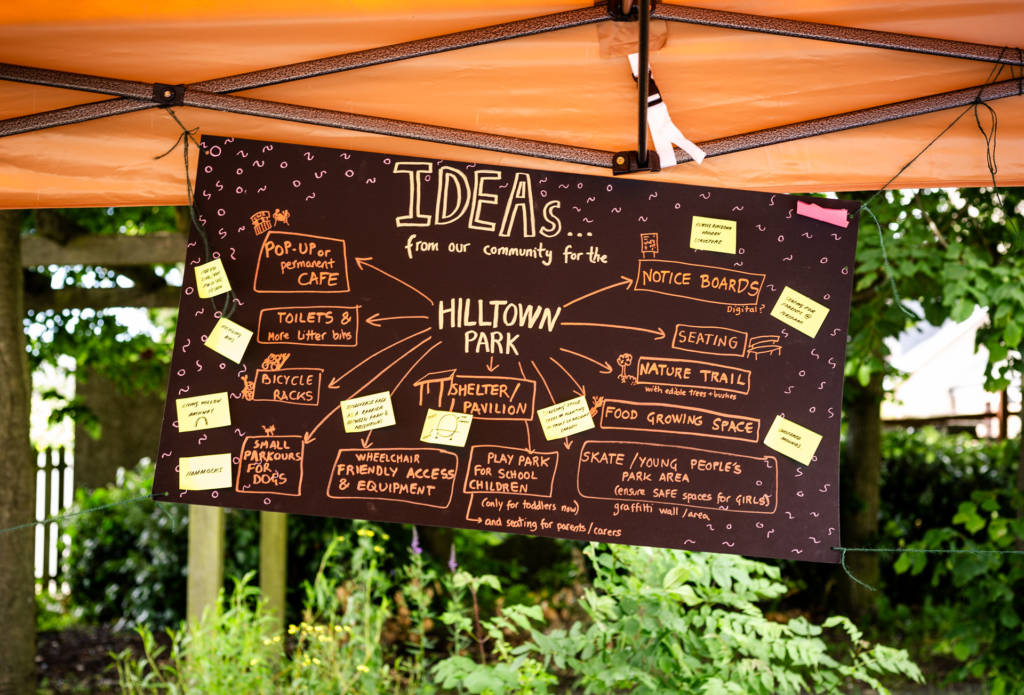 IDEAs...
from our community for the
HILLTOWN
PARK
POP-UP or
permanent
CAFE
TOILETS &
More litter bins
BICYCLE
RACKS
SMALL
PARKOURS
FOR
DOGS
WHEELCHAIR
FRIENDLY ACCESS
& EQUIPMENT
SHELTER/
PAVILION
PLAY PARK
FOR SCHOOL
CHILDREN
(only for toddlers now)
→ and seating for parents/carers
NOTICE BOARDS
Digital?
SEATING
NATURE TRAIL
with edible trees + bushes
FOOD GROWING SPACE
SKATE / YOUNG PEOPLE'S
PARK AREA
(ensure SAFE spaces for GIRLS)
graffiti wall/area
HAMMOCKS
LIVING WILLOW